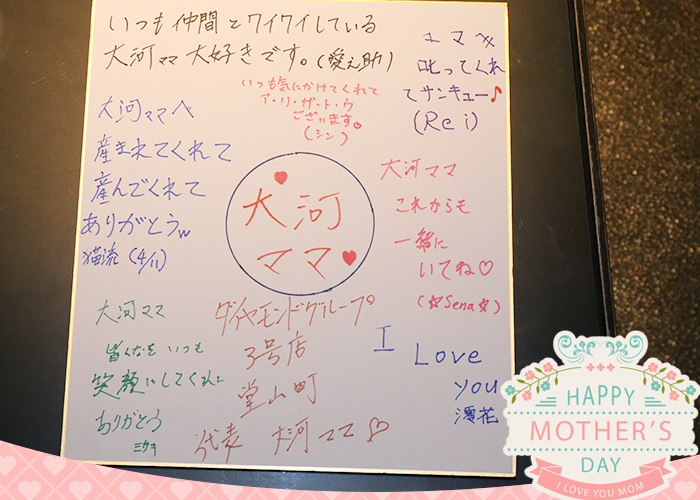 いつも仲間とワイワイしている
大河ママ大好きです。(愛之助)
いつも気にかけてくれて
ア・リ・ガ・ト・ウ
ございます。
(シン)
ママ
叱ってくれ
てサンキュー♪
(Rei)
大河ママへ
産まれてくれて
産んでくれて
ありがとうw
猫流(4/11)
大河
ママ
大河ママ
これからも
一緒に
いてね♡
(☆Sena☆)
大河ママ
皆んなをいつも
笑顔にしてくれて
ありがとう
ミウヨ
ダイヤモンドグループ
3号店
堂山町
代表 大河ママ♡
I Love
you
澪花
HAPPY
MOTHER'S
DAY
I LOVE YOU MOM